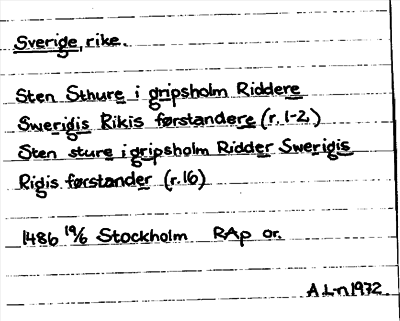 Sverige, rike.
Sten Sthure i gripsholm Riddere
Swerigis Rikis førstandere (r. 1-2)
Sten sture i gripsholm Ridder Swerigis
Rigis førstander (r. 16)
1486 19/6 Stockholm RAp or.
A Ln 1972.